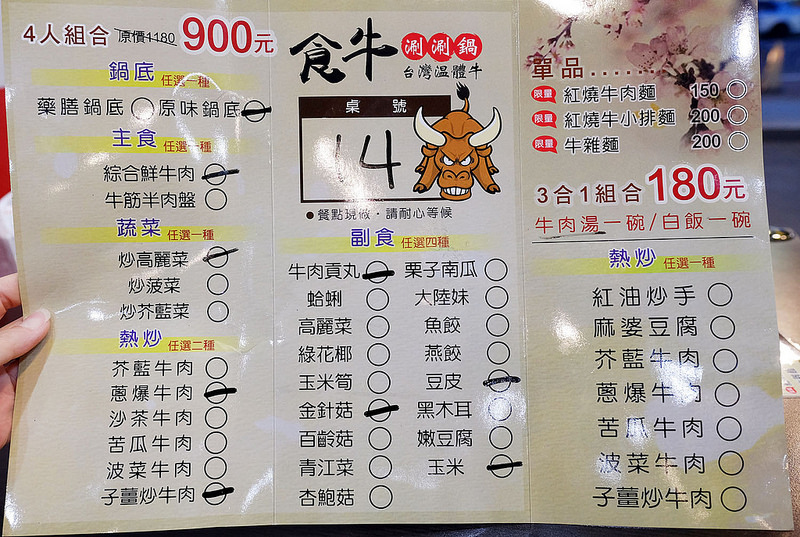 4人組合 原價1180 900元
鍋底 任選一種
藥膳鍋底 原味鍋底
主食 任選一種
綜合鮮牛肉
牛筋半肉盤
蔬菜 任選一種
炒高麗菜
炒菠菜
炒芥藍菜
熱炒 任選二種
芥藍牛肉
蔥爆牛肉
沙茶牛肉
苦瓜牛肉
波菜牛肉
子薑炒牛肉
食牛 涮涮鍋
台灣溫體牛
桌號
14
●餐點現做，請耐心等候
副食 任選四種
牛肉貢丸 栗子南瓜
蛤蜊 大陸妹
高麗菜 魚餃
綠花椰 燕餃
玉米筍 豆皮
金針菇 黑木耳
百齡菇 嫩豆腐
青江菜 玉米
杏鮑菇
單品......
限量 紅燒牛肉麵 150
限量 紅燒牛小排麵 200
限量 牛雜麵 200
3合1組合 180元
牛肉湯一碗/白飯一碗
熱炒 任選一種
紅油炒手
麻婆豆腐
芥藍牛肉
蔥爆牛肉
苦瓜牛肉
波菜牛肉
子薑炒牛肉